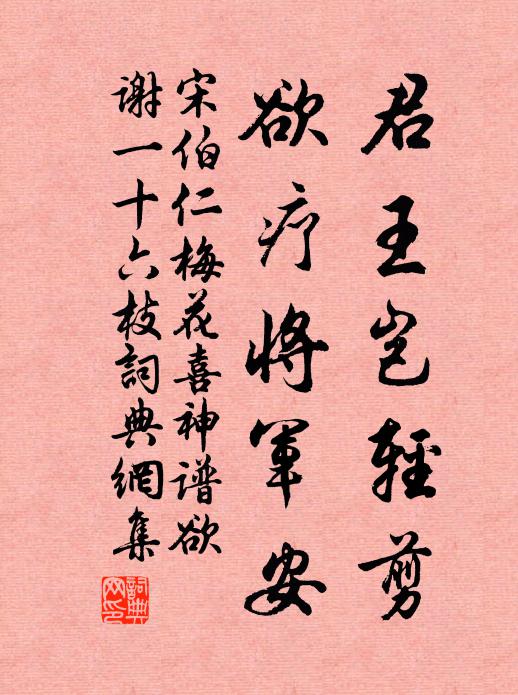 君王岂輕剪
欲疗将軍安
宋伯仁梅花喜神谱欲
谢一十六枝詞典網集
詞典網印